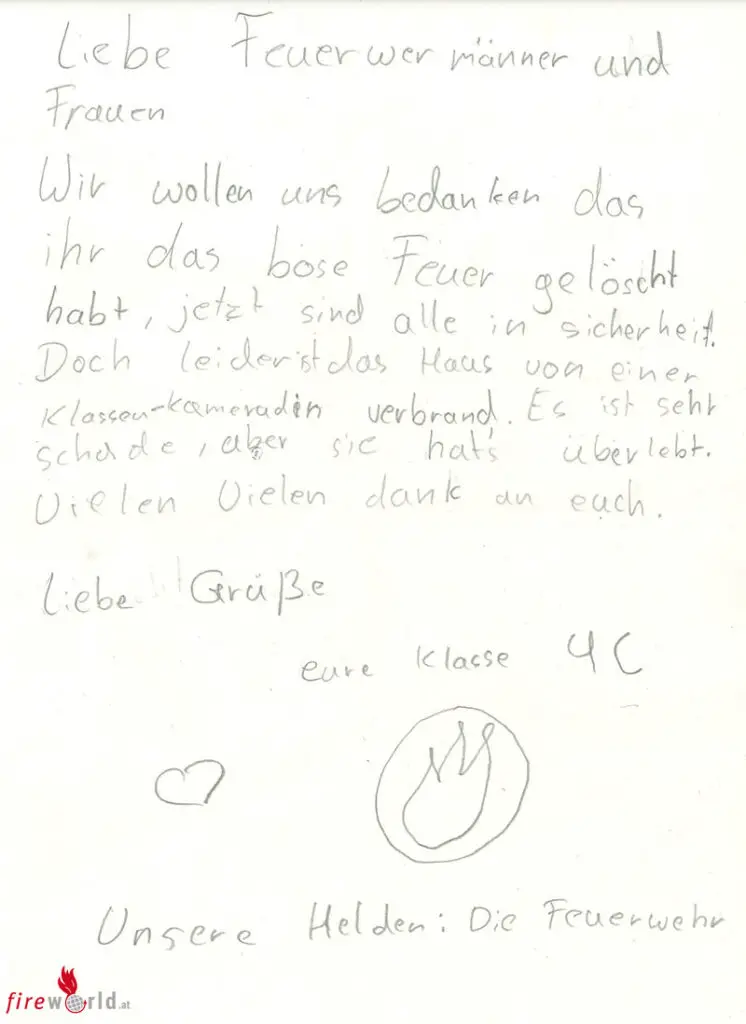 Liebe Feuerwermänner und
Frauen
Wir wollen uns bedanken das
ihr das böse Feuer gelöscht
habt, jetzt sind alle in sicherheit.
Doch leider ist das Haus von einer
Klassen-kameradin verbrand. Es ist sehr
schade, aber sie hat's überlebt.
Vielen Vielen dank an euch.
Liebe Grüße
eure Klasse 4C
Unsere Helden: Die Feuerwehr
fireworld.at